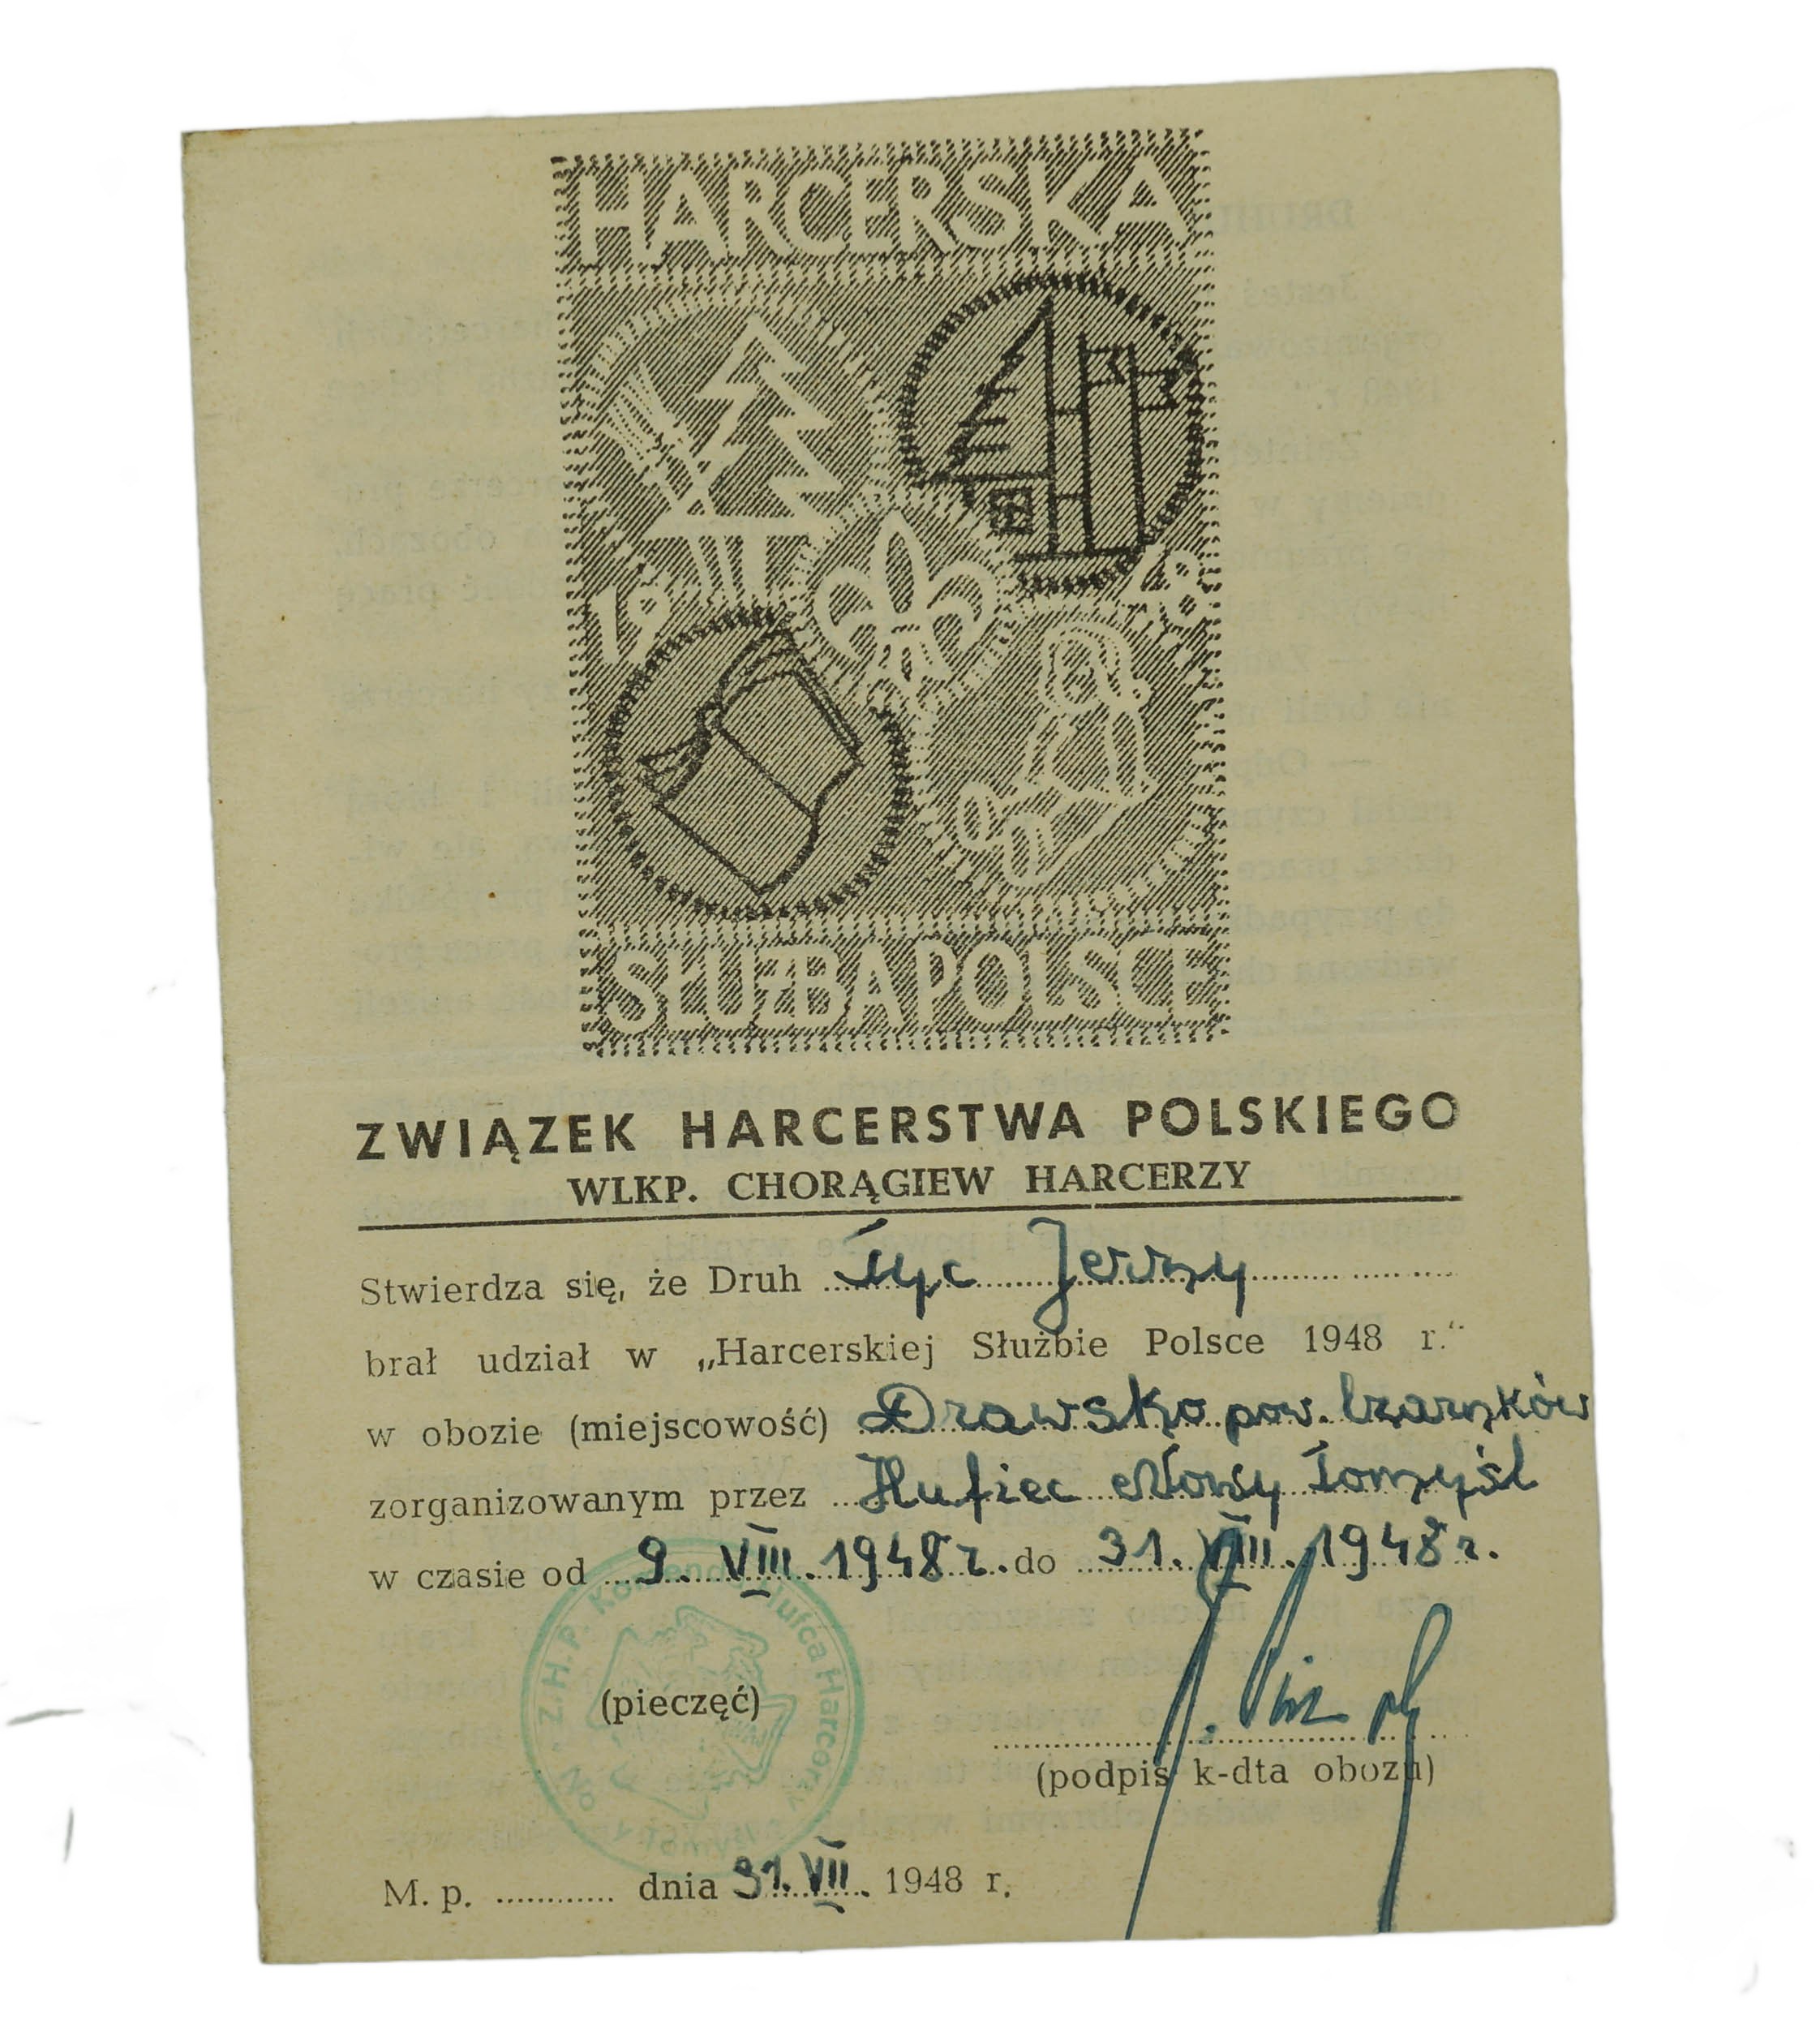 HARCERSKA
19 48
SŁUŻBA POLSCE
ZWIĄZEK HARCERSTWA POLSKIEGO
WLKP. CHORĄGIEW HARCERZY
Stwierdza się, że Druh Tyc Jerzy
brał udział w „Harcerskiej Służbie Polsce 1948 r.“
w obozie (miejscowość) Drawsko pow. Czarnków
zorganizowanym przez Hufiec Nowy Tomyśl
w czasie od 9. VIII. 1948 r. do 31. VIII. 1948 r.
Z.H.P. Komenda Hufca Harcerzy Nowy Tomyśl
(pieczęć)
(podpis k-dta obozu)
M. p. ............ dnia 31. VII. 1948 r.